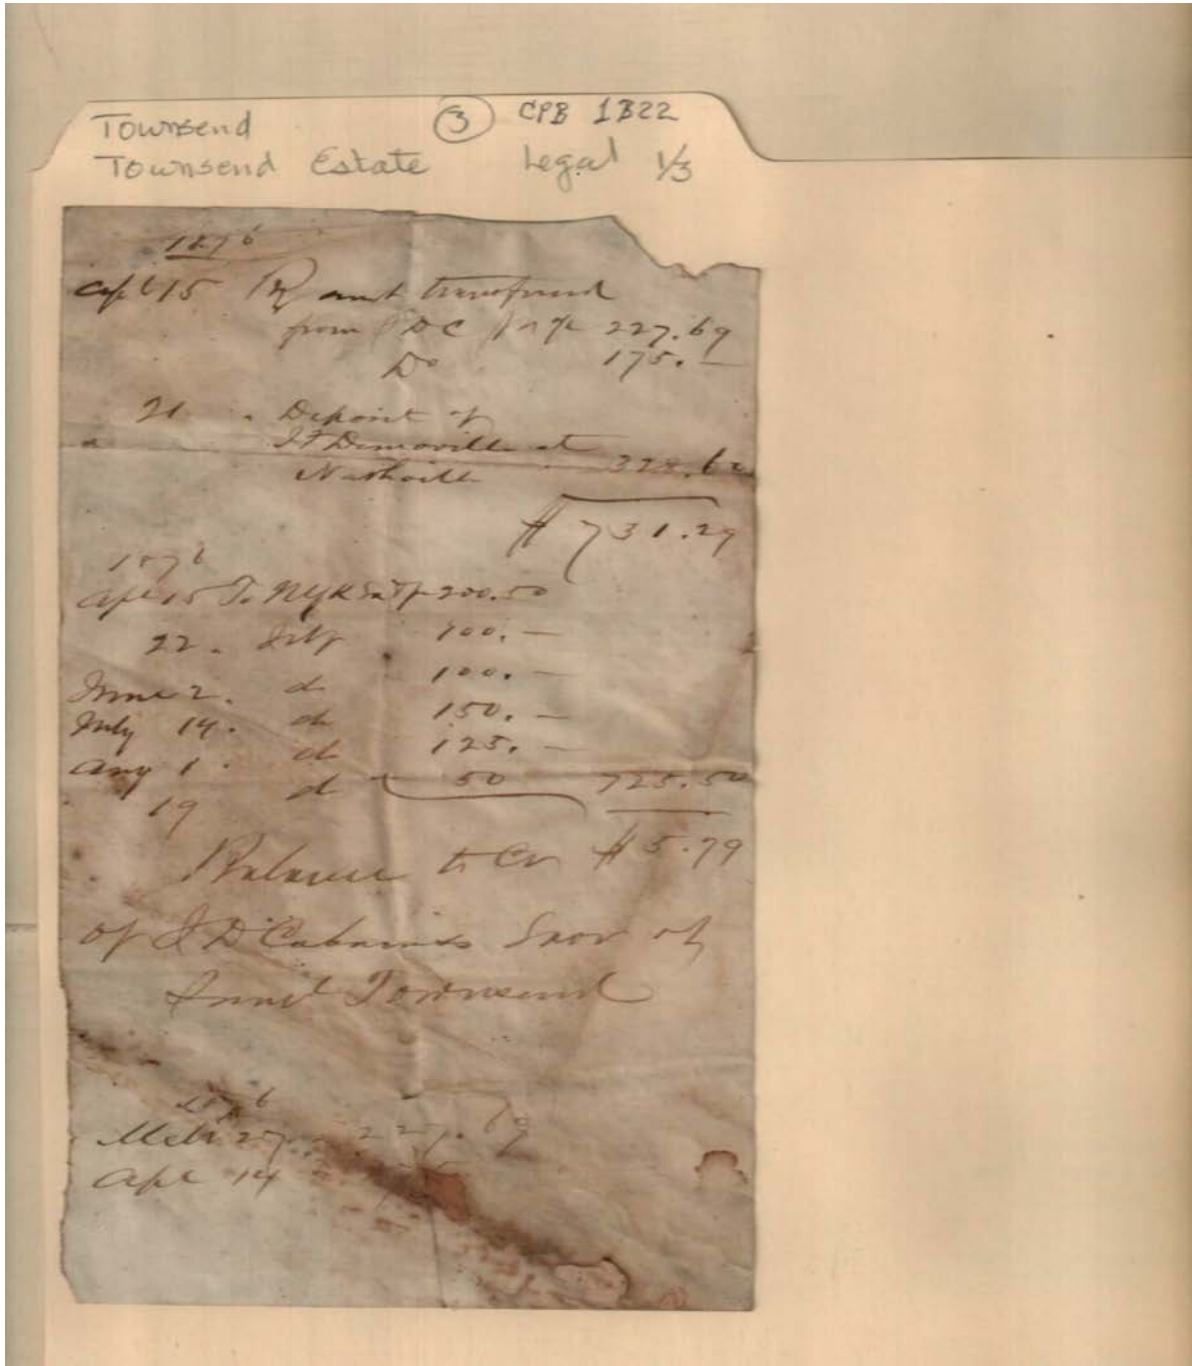 Townsend ③ CPB 1B22
Townsend Estate Legal 1/3
1876
Apl 15 By amt transferred
from 227.69
Do 175.—
21 " Deposit of
at
Nashville 328.60
$ 731.29
1876
Apl 15 To 200.50
22. 100.—
June 2. do 100.—
July 14. do 150.—
Aug 1. do 125.—
19 do 50 725.50
Balance to Cr $ 5.79
of J D Cabaniss of
Townsend
1876
Mch 27 227.69
Apl 14